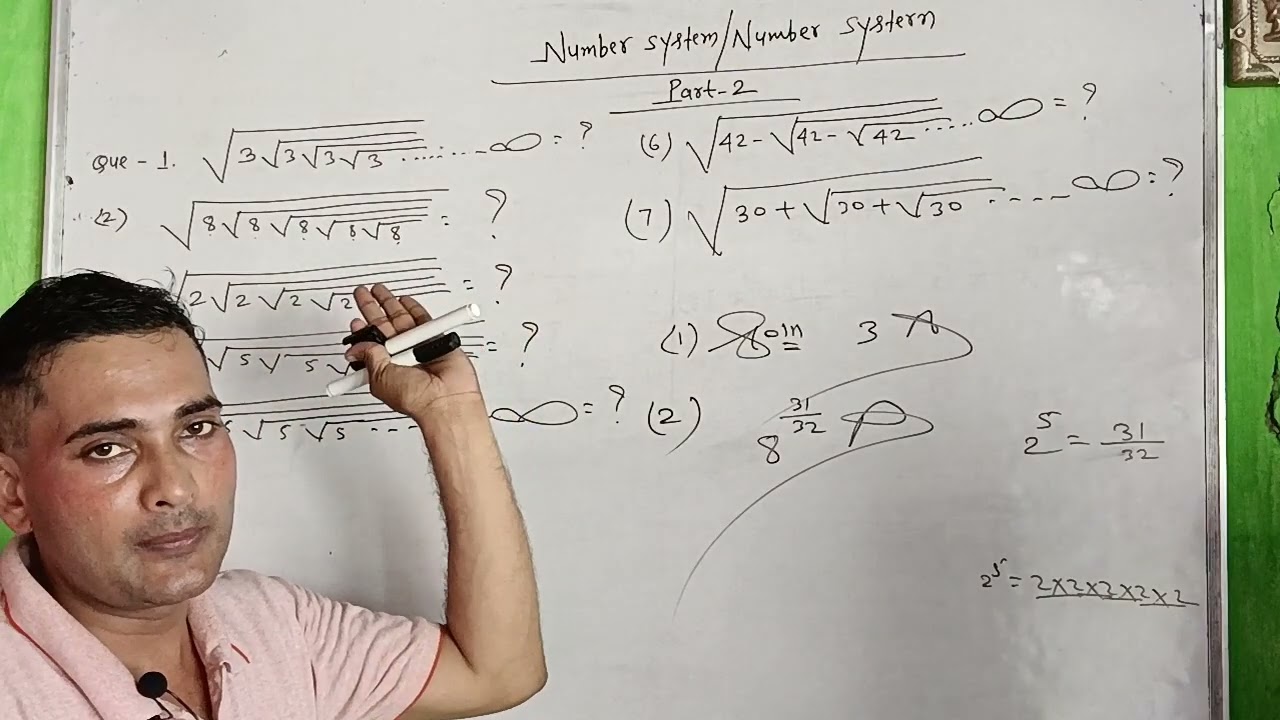 Number system/Number system
Part-2
Que - 1. √3√3√3√3 ........∞ = ?
(2) √8√8√8√8√8 = ?
√2√2√2√2 = ?
√5√5√ = ?
√5√5 --- ∞ = ?
(6) √42-√42-√42 ..... ∞ = ?
(7) √30+√30+√30 ---- ∞ = ?
(1) Soln 3
(2) 8^31/32
2^5 = 31/32
2^5 = 2×2×2×2×2